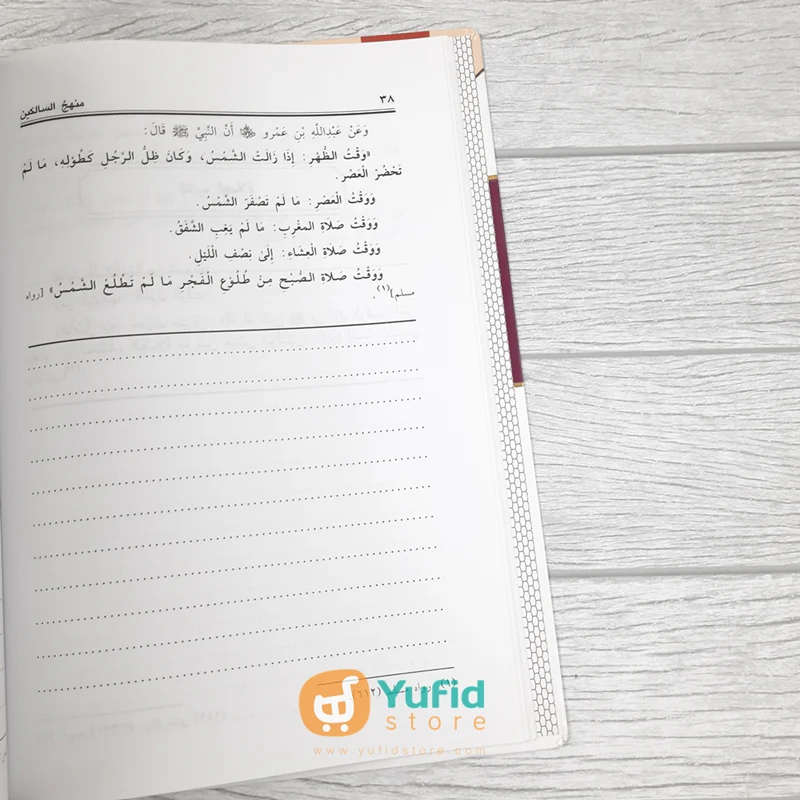 ٣٨ منهج السالكين
وَعَنْ عَبْدِاللَّهِ بْنِ عَمْرٍو ﵁ أَنَّ النَّبِيَّ ﷺ قَالَ:
«وَقْتُ الظُّهْرِ: إِذَا زَالَتْ الشَّمْسُ، وَكَانَ ظِلُّ الرَّجُلِ كَطُولِهِ، مَا لَمْ
تَحْضُرْ الْعَصْرُ.
وَوَقْتُ الْعَصْرِ: مَا لَمْ تَصْفَرَّ الشَّمْسُ.
وَوَقْتُ صَلَاةِ المَغْرِبِ: مَا لَمْ يَغِبِ الشَّفَقُ.
وَوَقْتُ صَلَاةِ الْعِشَاءِ: إِلَىٰ نِصْفِ اللَّيْلِ.
وَوَقْتُ صَلَاةِ الصُّبْحِ مِنْ طُلُوعِ الْفَجْرِ مَا لَمْ تَطْلُعْ الشَّمْسُ» [رواه
مسلم](١).
(١) رواه مسلم (٦١٢)
Yufid
store
www.yufidstore.com